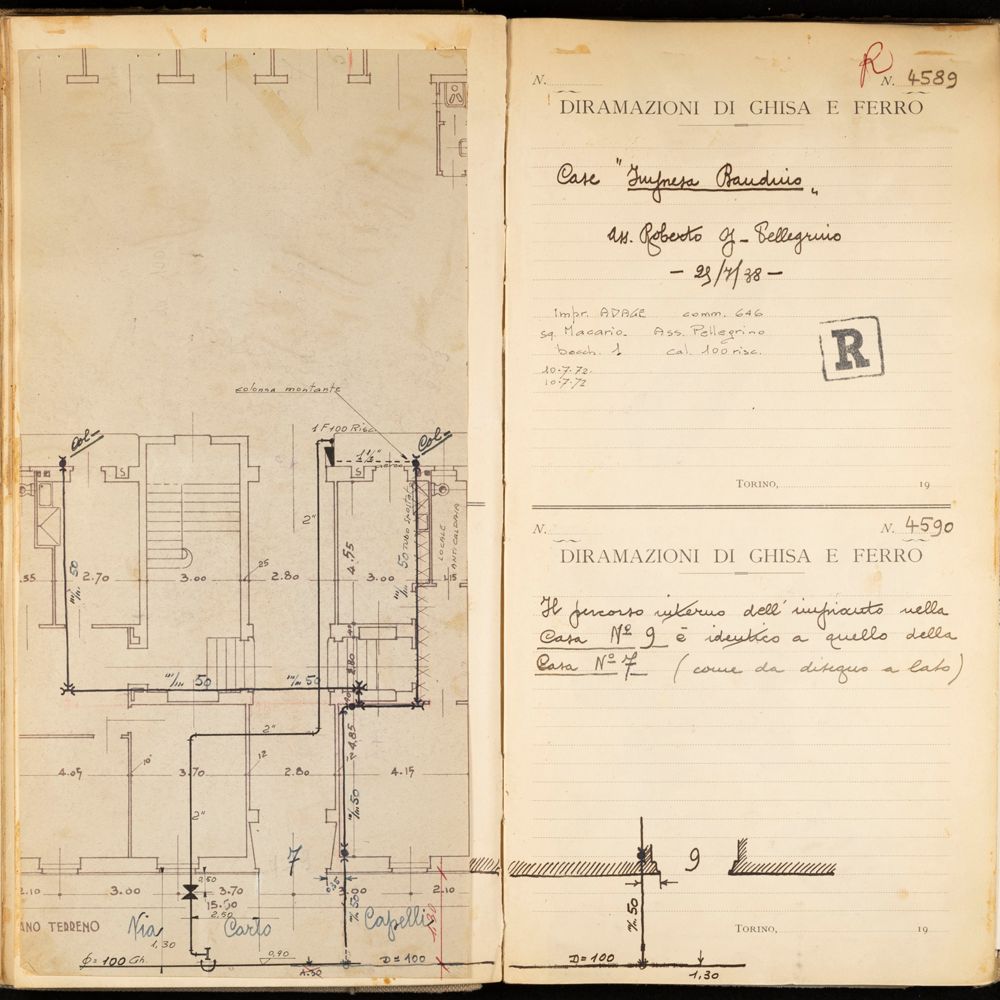 colonna montante
Col-
1 F 100 Risc.
Col-
1½"
S
S
2"
4.55
TUBO
LOCALE
ANTICALDAIA
m/m 50
m/m 50
25
.55
2.70
3.00
2.80
3.00
1.15
2.80
m/m 50
m/m 50
2"
4.85
10
12
4.05
3.70
2.80
4.15
2"
m/m 50
7
2.50
2.10
3.00
3.70
3.00
2.10
15.50
2.50
m/m 50
1,30
ANO TERRENO
Via Carlo Capelli
1,30
Φ = 100 Gh.
0,90
D = 100
1.30
R
N.
N. 4589
DIRAMAZIONI DI GHISA E FERRO
Case "Impresa Bauduio"
Ass. Roberto G - Pellegrino
Impr. ADAGE comm. 646
sq. Macario. Ass. Pellegrino
bocch. 1 cal. 100 risc.
10.7.72.
10.7.72
R
TORINO,
19
N.
N. 4590
DIRAMAZIONI DI GHISA E FERRO
Il percorso interno dell'impianto nella
Casa Nº 9 è identico a quello della
Casa Nº 7 (come da disegno a lato)
9
m/m 50
TORINO,
19
D = 100
1,30